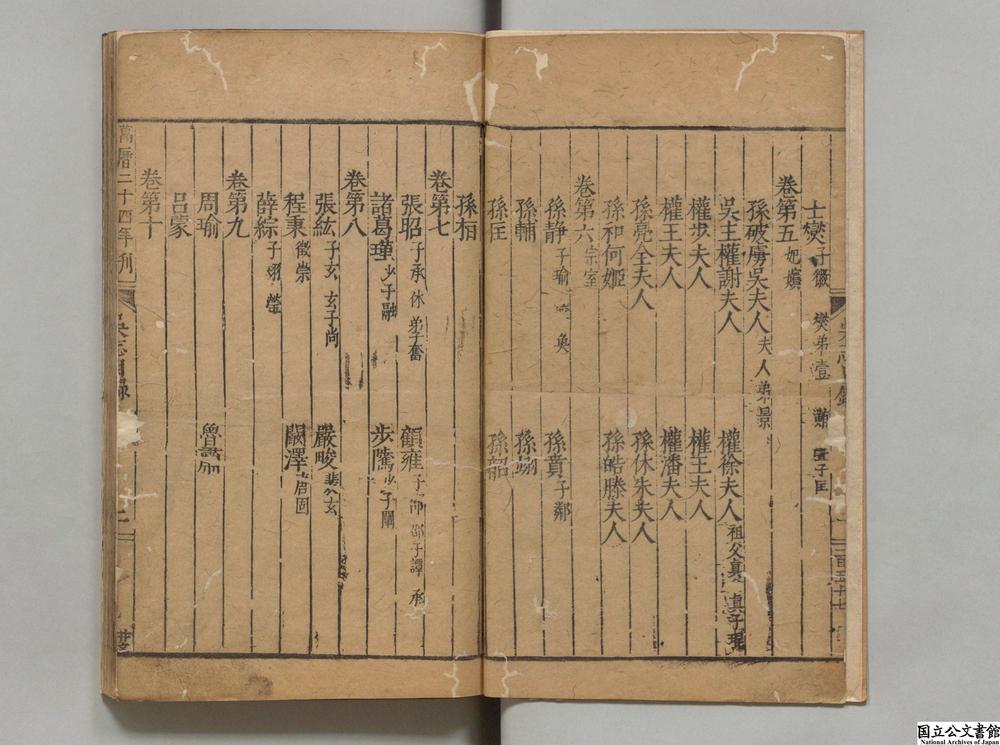 士燮 子徽 燮弟壹 䵋 壹子匡
卷第五 妃嬪
孫破虜吳夫人 夫人弟景
吳主權謝夫人 權徐夫人 祖父真 真子琨
權步夫人 權王夫人
權王夫人 權潘夫人
孫亮全夫人 孫休朱夫人
孫和何姬 孫皓滕夫人
卷第六 宗室
孫静 子瑜 奐 孫賁 子鄰
孫輔 孫翊
孫匡 孫韶
孫桓
卷第七
張昭 子承 休 弟子奮 顧雍 子邵 邵子譚 承
諸葛瑾 少子融 步騭 少子闡
卷第八
張紘 子玄 玄子尚 嚴畯 裴玄
程秉 徵崇 闞澤 唐固
薛綜 子珝 瑩
卷第九
周瑜 魯肅
吕蒙
卷第十
萬曆二十四年刊
吳志目録
国立公文書館
National Archives of Japan